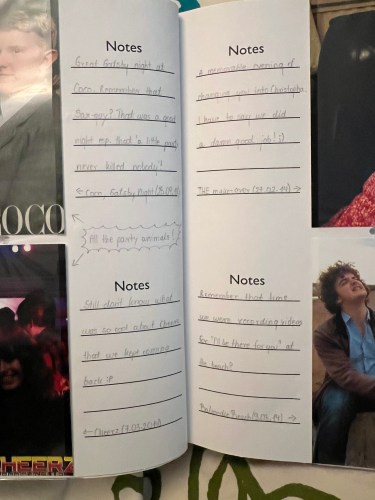 COCO
CHEERZ
Notes
Great Gatsby night at
Coco. Remember that
guy? That was a good
night esp. that 'a little party
never killed nobody'!
← Coco, Gatsby Night
All the party animals!
Notes
Still don't know what
was so great about Cheerz
that we kept coming
back :P
← Cheerz (7.03.2014)
Notes
A memorable evening of
changing you into Christopher
I have to say we did
a damn good job! :)
THE make-over (27.02.14) →
Notes
Remember that time
we were recording videos
for "I'll be there for you" at
the beach?
Beach →